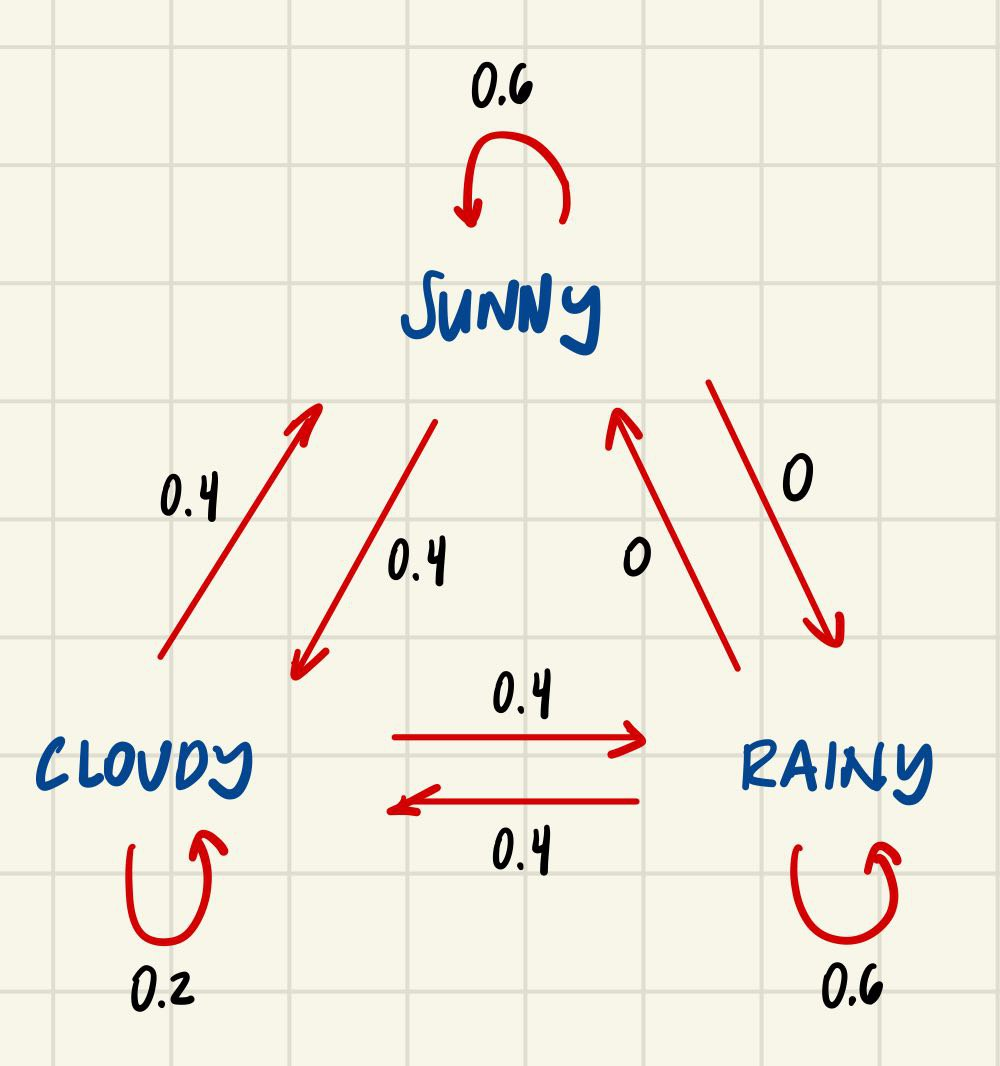 0.6
SUNNY
0.4
0.4
0
0
0.4
CLOUDY
RAINY
0.4
0.2
0.6